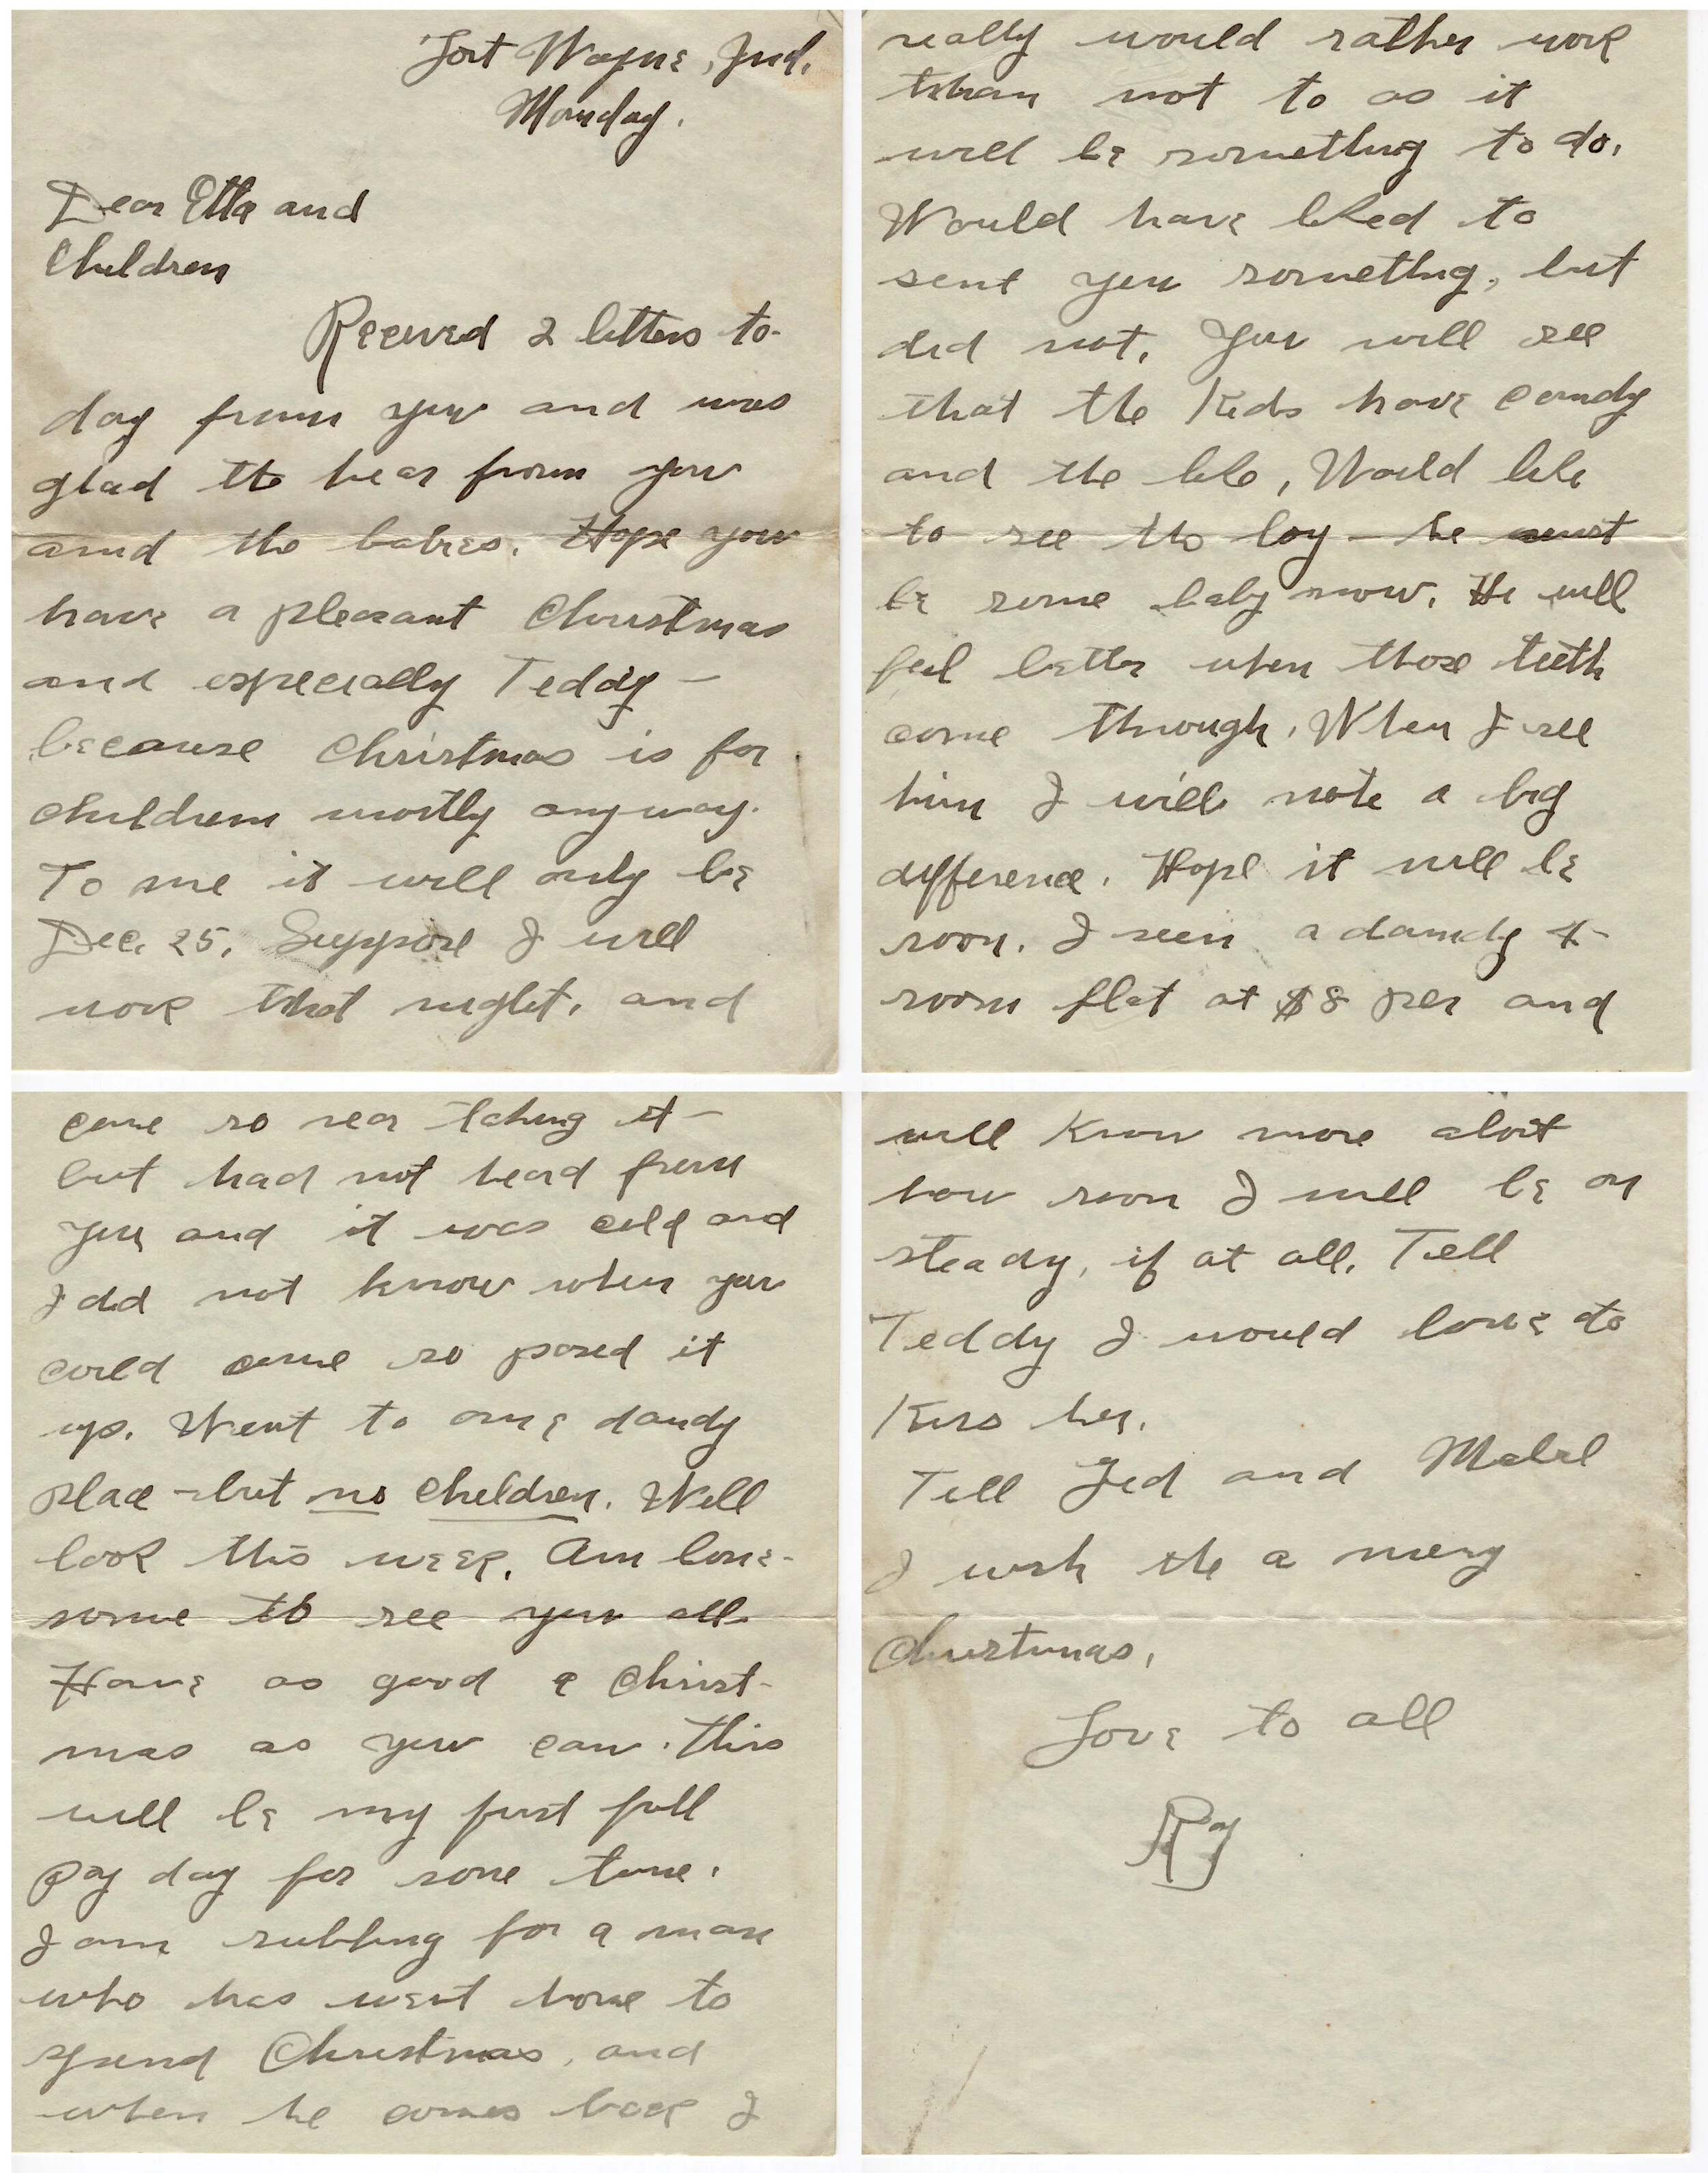 Fort Wayne, Ind.
Monday.
Dear Etta and
Children
Received 2 letters to-
day from you and was
glad to hear from you
and the babies. Hope you
have a pleasant Christmas
and especially Teddy —
because Christmas is for
children mostly anyway.
To me it will only be
Dec. 25. Suppose I will
work that night, and
really would rather work
than not to as it
will be something to do.
Would have liked to
sent you something, but
did not. You will see
that the kids have candy
and the like, Would like
to see the boy — he must
be some baby now. He will
feel better when those teeth
come through. When I see
him I will note a big
difference. Hope it will be
soon. I seen a dandy 4-
room flat at $8 per and
came so near taking it —
but had not heard from
you and it was cold and
I did not know when you
could come so passed it
up. Went to one dandy
place — but no children. Will
look this week. Am lone-
some to see you all.
Have as good a Christ-
mas as you can. This
will be my first full
pay day for some time.
I am subbing for a man
who has went home to
spend Christmas, and
when he comes back I
will know more about
how soon I will be on
steady, if at all. Tell
Teddy I would love to
kiss her.
Tell Jed and Mabel
I wish the a merry
Christmas,
Love to all
Ray